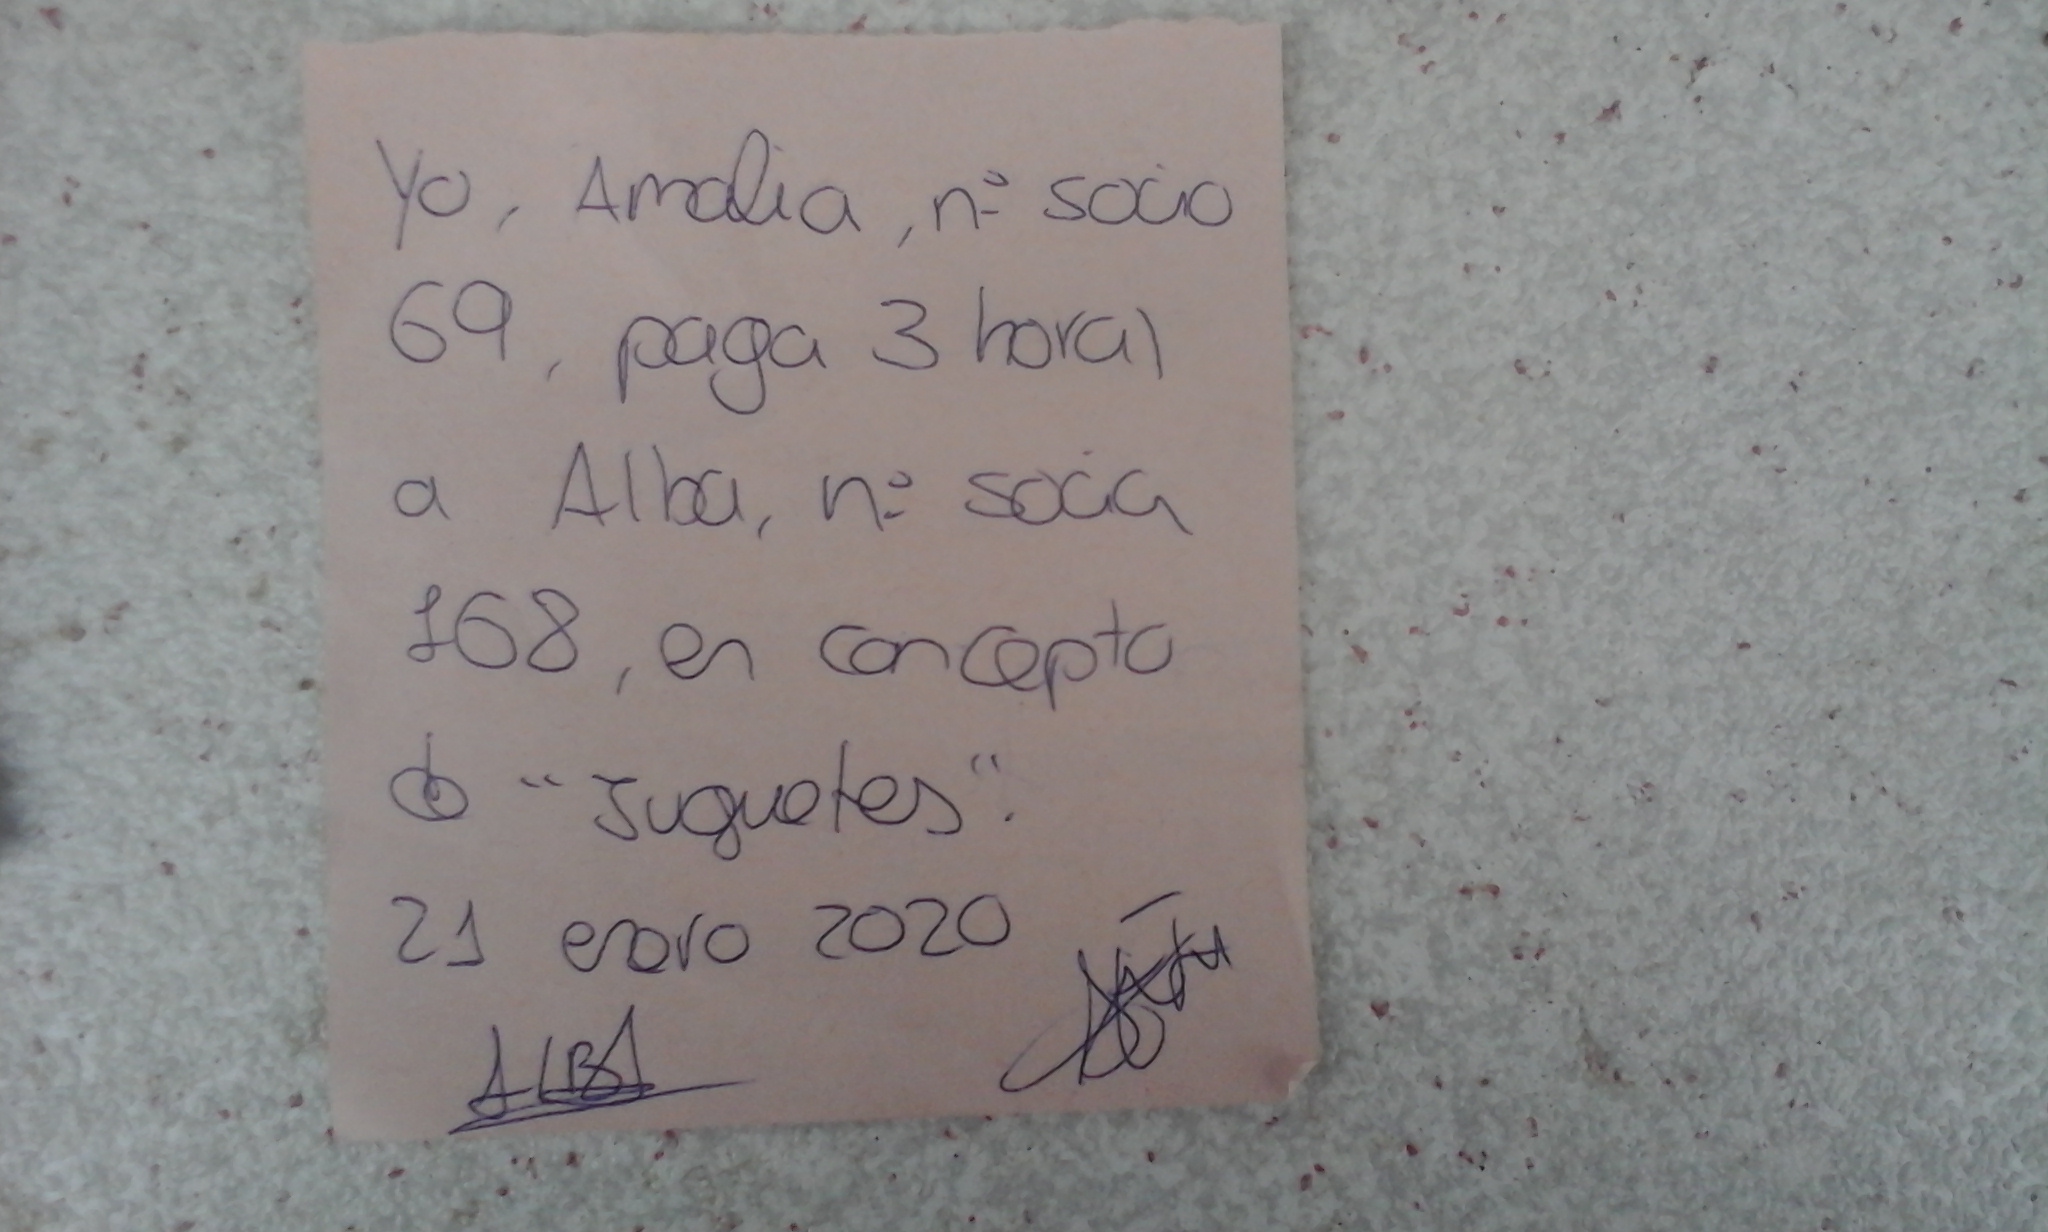 Yo, Amalia, nº socio
69, paga 3 horas
a Alba, nº socia
168, en concepto
de "Juguetes".
21 enero 2020
ALBA